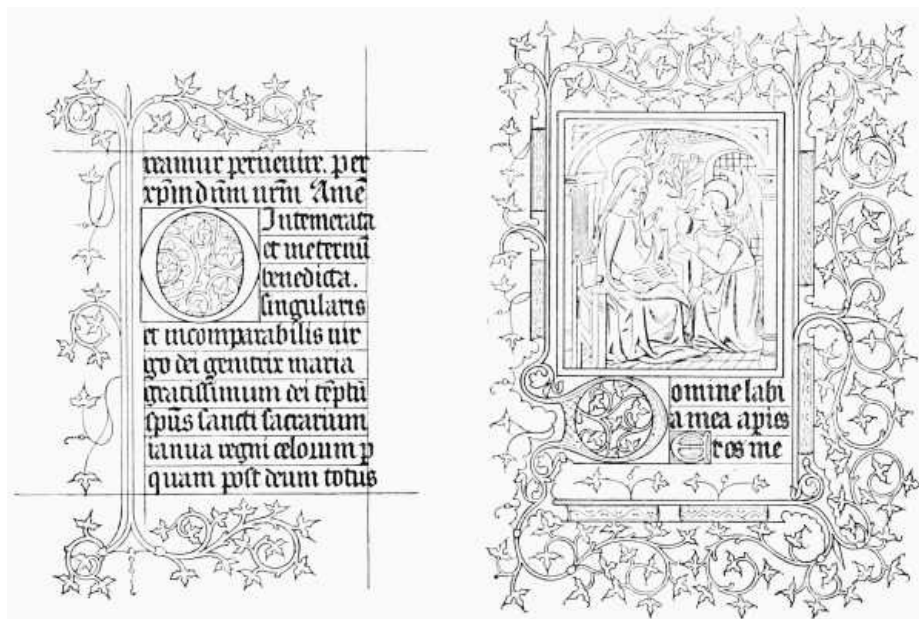 eamur peruenire. per
xp̄m dn̄m nr̄m Amē
O Intemerata
et ineternū
benedicta.
singularis
et incomparabilis uir
go dei genitrix maria
gratissimum dei tēplū
sp̄us sancti sacrarium
ianua regni celorum p̄
quam post deum totus
Domine labi
a mea apies
Et os me